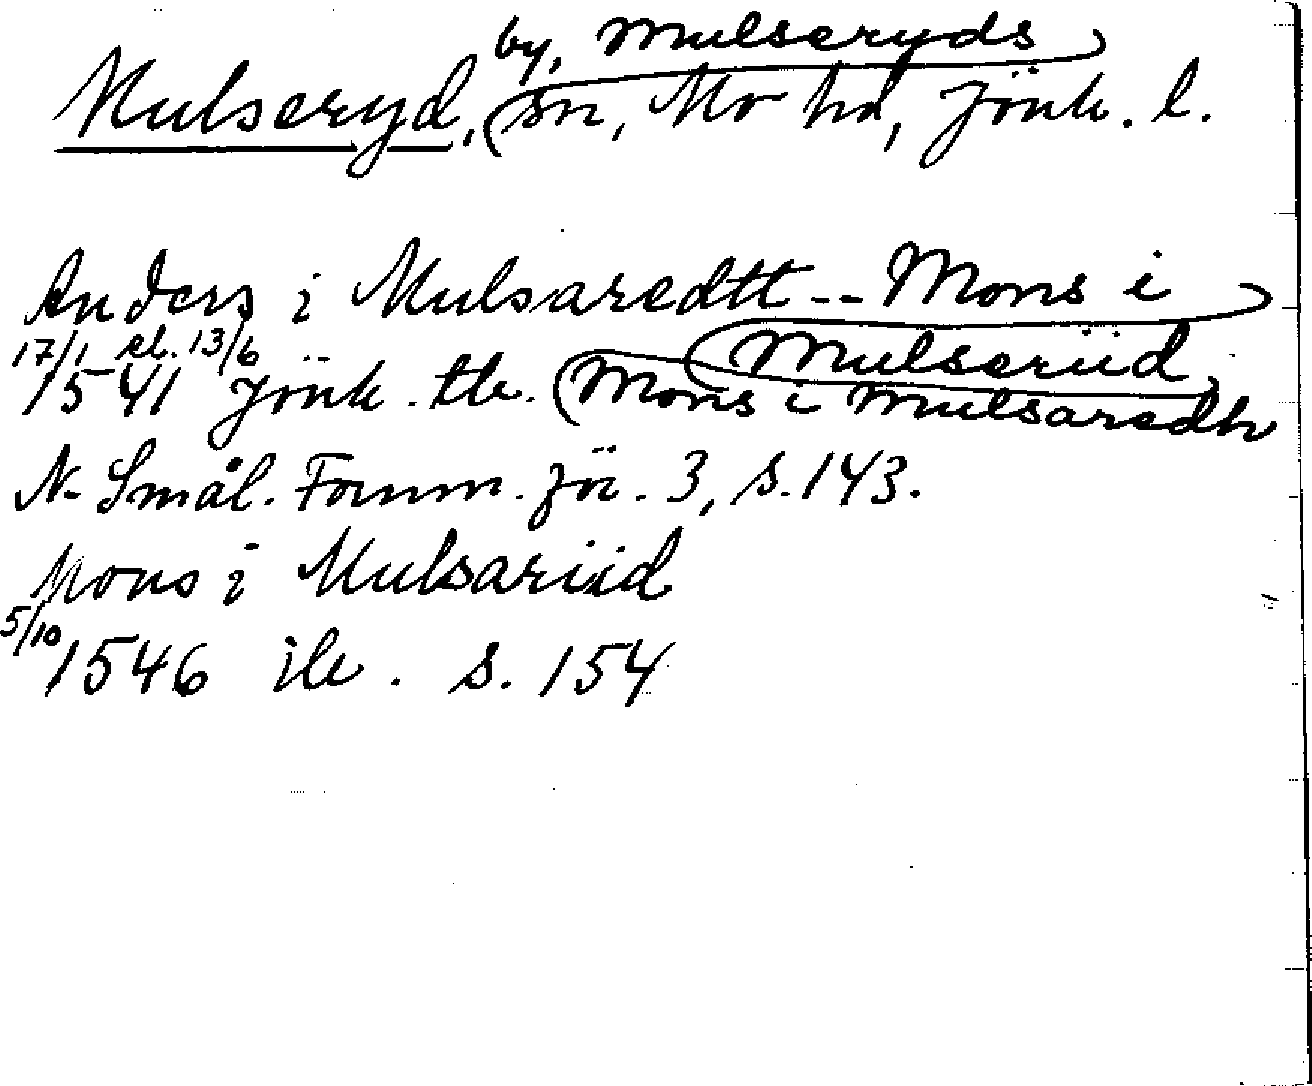 by, Mulseryds
Mulseryd, sn, Mo hd, Jönk. l.
Anders i Mulsaredtt -- Mons i
Mulseriid
17/1 el. 13/6
1541 Jönk. tb. Mons i Mulsaredh
N. Smål. Fornm. för. 3, s. 143.
Mons i Mulsariid
5/10
1546 ib. s. 154